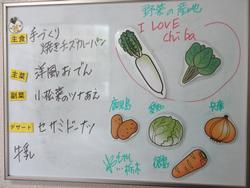 野菜の産地
I LOVE
Chiba
主食 手づくり
焼きチーズカレーパン
主菜 洋風おでん
副菜 小松菜のツナあえ
デザート セサミドーナツ
牛乳
鹿児島
愛知
兵庫
栃木
徳島